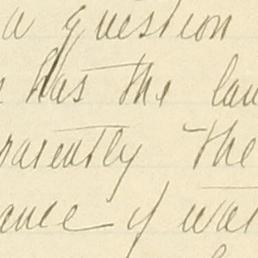 a question
has the law
parently the
ance of wat